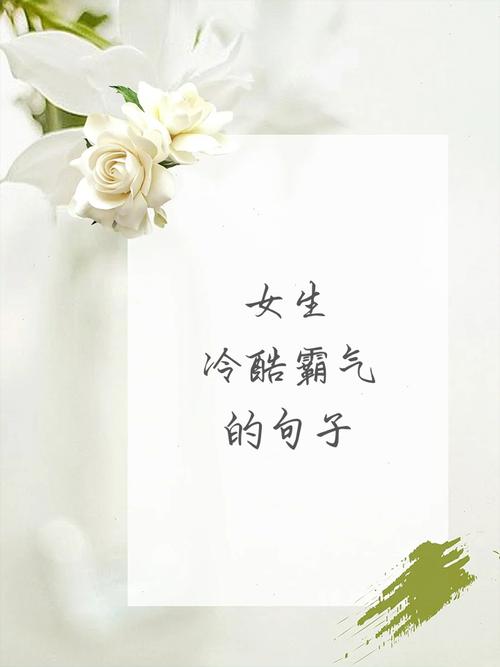 女生
冷酷霸气
的句子